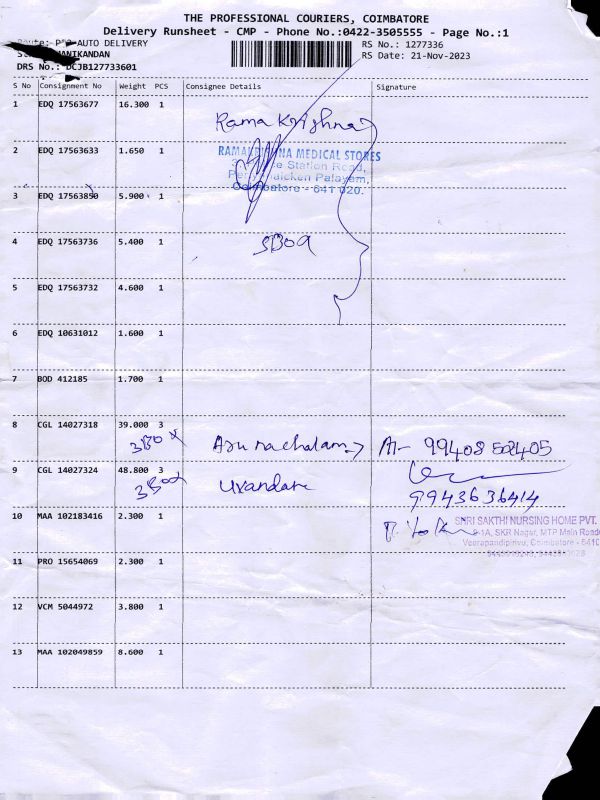 THE PROFESSIONAL COURIERS, COIMBATORE
Delivery Runsheet - CMP - Phone No.:0422-3505555 - Page No.:1
AUTO DELIVERY
RS No.: 1277336
MANIKANDAN
RS Date: 21-Nov-2023
DRS No.: DCJB127733601
S No Consignment No Weight PCS Consignee Details Signature
1 EDQ 17563677 16.300 1
Rama Krishna
2 EDQ 17563633 1.650 1
MEDICAL STORES
Station Road,
Palayam,
Coimbatore - 641 020.
3 EDQ 17563850 5.900 1
4 EDQ 17563736 5.400 1
5 EDQ 17563732 4.600 1
6 EDQ 10631012 1.600 1
7 BOD 412185 1.700 1
8 CGL 14027318 39.000 3
3Box Arunachalam 99408 50405
9 CGL 14027324 48.800 3
3Box
9943636414
10 MAA 102183416 2.300 1
SRI SAKTHI NURSING HOME PVT.
1A, SKR Nagar, MTP Main Road
Coimbatore - 6410
11 PRO 15654069 2.300 1
12 VCM 5044972 3.800 1
13 MAA 102049859 8.600 1